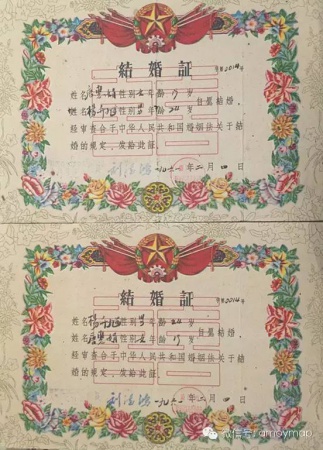 結婚証
字第2214号
姓名 性别女年龄19岁
姓名楊 性别男年龄24岁
自愿结婚,
经审查合于中华人民共和国婚姻法关于结
婚的规定,发给此证。
一九六一年二月四日
結婚証
字第2214号
姓名楊 性别男年龄24岁
姓名 性别女年龄19岁
自愿结婚,
经审查合于中华人民共和国婚姻法关于结
婚的规定,发给此证。
一九六一年二月四日
微信号: amoymap